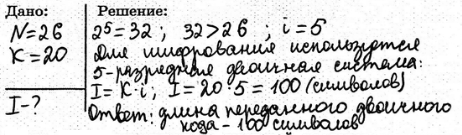 Дано:
Решение:
N=26
2⁵=32 ; 32>26 ; i=5
K=20
Для шифрования используется
5-разрядная двоичная система:
I=K·i; I=20·5=100 (символов)
I-?
Ответ: длина переданного двоичного
кода - 100 символов